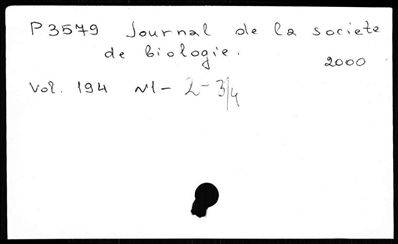 P3579 Journal de la societe
de biologie.
2000
Vol. 194 N1- 2- 3/4